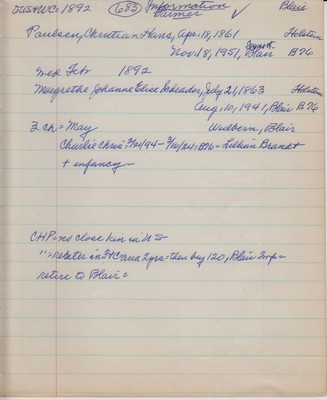 TO US+WC 1892 (683) Information Farmer ✓ Blair
Paulsen, Christian Hans, Apr. 18, 1861 Holstein
Nov. 18, 1951, Blair B76
Wed Feb 1892
Margrethe Johanne Elise Schrader, July 21, 1863 Holstein
Aug. 10, 1941, Blair B76
3 ch = May Wedbern, Blair
Charlie Chris = 7/21/94 - 3/16/24 = B76 = Lillian Brandt
+ infancy
CHP = no close kin in U S =
" = renter in HC area 2 yrs = then buy 120, Blair Twp =
retire to Blair =